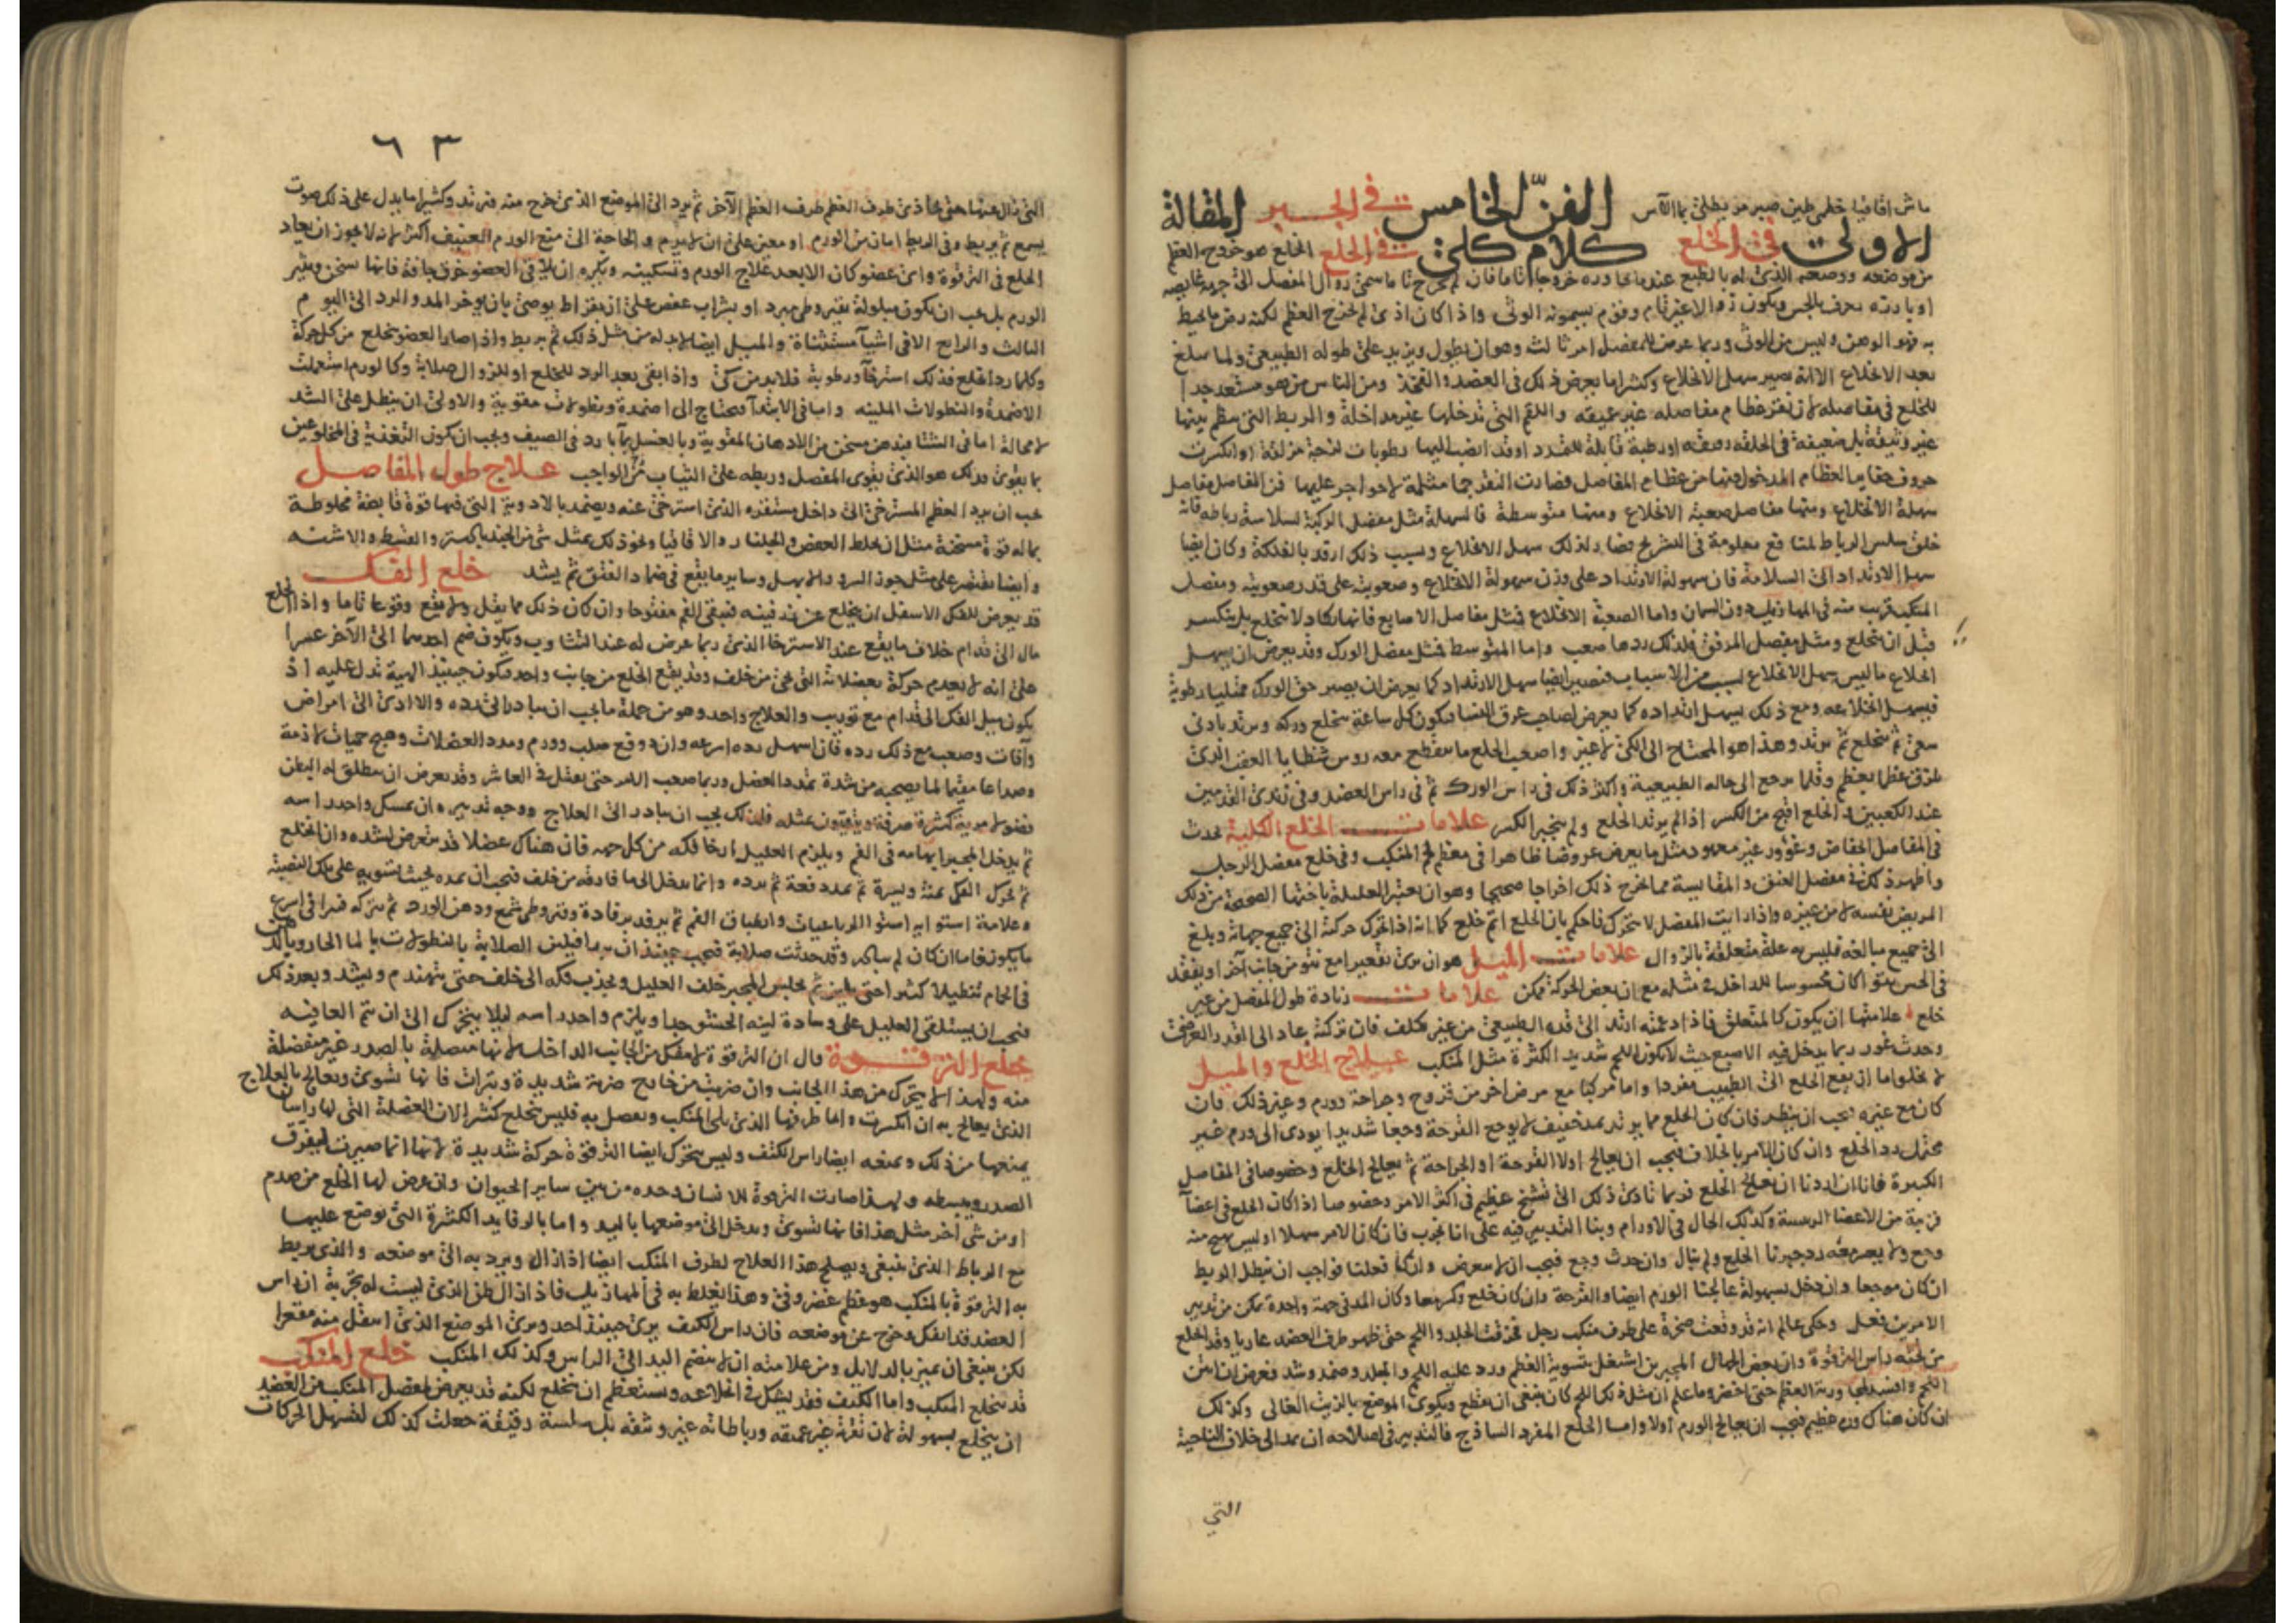 ماش اقاقيا خطمى طين صبر مر يطلى بما الآس الفنّ الخامس فى الجبر المقالة
الاولى فى الخلع كلام كلى فى الخلع الخلع هو خروج العظم
من موضعه ووضعه الذى له بالطبع عند ما يجاوره خروجا تاما فان لم يخرج تاما سمى زوال المفصل الى جهة
يعرف بالجس ويكون زوالا غير تام وقوم يسمونه الوثى واذا كان اذى لم يخرج العظم لكنه رض ما يحيط
به فهو الوهن وليس من الوثى وربما عرض للمفصل امر ثالث وهو ان يطول ويزيد على طوله الطبيعى ولما يبلغ
بعد الانخلاع الا انه يصير سهل الانخلاع وكثيرا ما يعرض ذلك فى العضد والفخذ ومن الناس من هو مستعد جدا
للخلع فى مفاصله لان نقر عظام مفاصله غير عميقه واللقم التى تدخلها غير مداخلة والربط التى ينظم بينها
غير وثيقة بل ضعيفة فى الخلقه او رطبة قابلة للتمدد او قد انصب اليها رطوبات لزجة مزلقة او انكسرت
حروف العظام المدخول فيها من عظام المفاصل فصارت النقر مثلمة لا حواجر عليها فن المفاصل مفاصل
سهلة الانخلاع ومنها مفاصل صعبة الانخلاع ومنها متوسطة فالسهلة مثل مفصل الركبة لسلاسة رباطه فانه
خلق سلس الرباط لمنافع معلومة فى التشريح فصار لذلك سهل الانخلاع وكان ايضا
سهل الارتداد الى السلامة فان سهولة الارتداد على وزن سهولة الانخلاع وصعوبته على قدر صعوبته ومفصل
المنكب قريب منه فى المهازيل دون السمان واما الصعبة الانخلاع فمثل مفاصل الاصابع فانها تكاد لا تنخلع بل تنكسر
قبل ان تنخلع ومثل مفصل المرفق فلذلك ردها صعب واما المتوسط فمثل مفصل الورك وقد يعرض ان يسهل
انخلاع ما ليس بسهل الانخلاع لسبب من الاسباب فيصير ايضا سهل الارتداد كما يعرض ان يصير حق الورك ممتليا رطوبة
فيسهل انخلاعه ومع ذلك يسهل ارتداده كما يعرض لصاحب عرق النسا فيكون كل ساعة ينخلع وركه ويرتد بادنى
سعى ثم ينخلع ثم يرتد وهذا هو المحتاج الى الكى لا غير واصعب الخلع ما ينقطع معه روس شظايا العقب الذى
عظما بعظم وقلما يرجع الى حاله الطبيعية واكثر ذلك فى راس الورك ثم فى راس العضد وفى زندى القدمين
عند الكعبين والخلع اقبح من الكسر اذا لم يرتد الخلع ولم ينجبر الكسر علامات الخلع الكلية يحدث
فى المفاصل انخفاض وغوور غير معهود مثل ما يعرض عروضا ظاهرا فى معظم المنكب وفى خلع مفصل الرجل
واظهر ذلك فى مفصل العنق والمقايسة مما يخرج ذلك اخراجا صحيحا وهو ان يعتبر العليلة باختها الصحيحة من ذلك
المريض نفسه لا من غيره واذا رايت المفصل لا يتحرك فاحكم بان الخلع اتم خلع كما انه اذا تحرك حركته الى جميع جهاته وبلغ
الى جميع مبالغه فليس به علة متعلقة بالزوال علامات الميل هو ان ترى تقعيرا مع نتو من جانب اخر او يفقد
فى الحس نتوا كان محسوسا للداخل مع ان بعض الحركة ممكن علامات زيادة طول المفصل من غير
خلع علامتها ان يكون كالمتعلق فاذا دعمته ارتد الى قده الطبيعى من غير تكلف فان تركته عاد الى القدر العرضى
وحدث غور ربما يدخل فيه الاصبع حيث لا يكون اللحم شديد الكثرة مثل المنكب علاج الخلع والميل
لا يخلوا اما ان يقع الخلع الى الطبيب مفردا واما مركبا مع مرض اخر من قروح وجراحة وورم وغير ذلك فان
كان مع غيره يجب ان ينظر فان كان الخلع مما يرتد بمد خفيف لا يوجع القرحة وجعا شديدا يودى الى ورم غير
محتمل رد الخلع وان كان الامر بالخلاف فيجب ان يعالج اولا القرحة او الجراحة ثم يعالج الخلع وخصوصا فى المفاصل
الكبيرة فانا ان اردنا ان نعالج الخلع فربما تادى ذلك الى تشنج عظيم فى اكثر الامر وخصوصا اذا كان الخلع فى اعضا
قريبة من الاعضا الريسة وكذلك الحال فى الاورام وبنا التدبير فيه على انا نجرب فان كان الامر سهلا او ليس يهيج منه
وجع ولا يصير معه رد جبرنا الخلع ولم نبال وان حدث وجع فيجب ان لا نعرض وان كنا فعلنا فواجب ان نبطل الربط
ان كان موجعا وان دخل بسهولة عالجنا الورم ايضا والقرحة وان كان خلع وكسر معا وكان المد فى جهة واحدة يمكن من تدبير
الامرين فعل وحكى عالم انه قد وقعت صخرة على طرف منكب رجل فخرقت الجلد واللحم حتى ظهر طرف العضد عاريا وقد انخلع
من تحته راس الترقوة وان بعض الجهال المجبرين اشتغل بتسوية العظم ورد عليه اللحم والجلد وضمد وشد فعرض ان انتن
اللحم وافسد العظم حتى اخضر وما علم ان مثل ذلك اللحم كان ينبغى ان يقطع ويكوى الموضع بالزيت الغالى وكذلك
ان كان هناك ورم عظيم فيجب ان يعالج الورم اولا واما الخلع المفرد الساذج فالتدبير فى اصلاحه ان يمد الى خلاف الناحية
التى
٦٣
التى زال عنها حتى يحاذى طرف العظم طرف العظم الآخر ثم يرد الى الموضع الذى خرج منه فيرتد وكثيرا ما يدل على ذلك صوت
يسمع ثم يربط وفى الربط امان من الورم او معين على ان لا يرم والحاجة الى منع الورم العنيف اكثر لانه لا يجوز ان يعاد
الخلع فى الترقوة واى عضو كان الا بعد علاج الورم وتسكينه ويكره ان يلاقى العضو خرق جافة فانها تسخن وتثير
الورم بل يجب ان يكون مبلولة بقيروطى مبرد او بشراب عفص على ان بقراط يوصى بان يوخر المد والرد الى اليوم
الثالث والرابع الا فى اشيآ مستثناة والميل ايضا لا بد له من مثل ذلك ثم يربط واذا صار العضو ينخلع من كل حركة
وكلما رد انخلع فذلك استرخآ ورطوبة فلا بد من كى واذا بقى بعد الرد للخلع او للزوال صلابة وكالورم استعملت
الاضمدة والنطولات الملينه واما فى الابتدآ فيحتاج الى اضمدة ونطولات مقوية والاولى ان ينطل على الشد
لا محالة اما فى الشتا فبدهن مسخن من الادهان المقوية وبالعسل بمآ بارد فى الصيف ويجب ان تكون التغذية فى المخلوعين
بما يقوى وذلك هو الذى يقوى المفصل وربطه على الثبات من الواجب علاج طول المفاصل
يجب ان يرد العظم المسترخى الى داخل مستقره الذى استرخى عنه ويضمد بالادوية التى فيها قوة قابضة مخلوطة
بماله قوة مسخنة مثل ان يخلط العفص والجلنار والاقاقيا ونحو ذلك بمثل شى من الجندبادستر والقسط والاشنه
وايضا يقتصر على مثل جوز السرو والابهل وساير ما يقع فى ضماد الفتق ثم يشد خلع الفك
قد يعرض للفك الاسفل ان ينخلع عن زرفينه فيبقى الفم مفتوحا وان كان ذلك مما يقل ولا يقع وقوعا تاما واذا انخلع
مال الى قدام خلاف ما يقع عند الاسترخا الذى ربما عرض له عند التثاوب ويكون ضم احدهما الى الآخر عسرا
على انه لا يعدم حركة بعضلاته التى تجى من خلف وقد يقع الخلع من جانب واحد فيكون حينيذ الهية تدل عليه اذ
يكون ميل الفك الى قدام مع توريب والعلاج واحد وهو من جملة ما يجب ان يبادر الى رده والا ادى الى امراض
وآفات وصعب مع ذلك رده فان اسهل رده اسرعه وان دوفع صلب وورم ومدد العضلات وهيج حميات لازمة
وصداعا مقيما لما يصحبه من شدة تمدد العضل وربما صعب الامر حتى يقتل فى العاشر وقد يعرض ان ينطلق له البطن
فضولا مرية كثيرة صرفة ويتقيون بمثله فلذلك يجب ان يبادر الى العلاج ووجه تدبيره ان يمسك واحد راسه
ثم يدخل المجبر ابهامه فى الفم ويلزم العليل ارخا فكه من كل جهه فان هناك عضلا قد يتعرض لشده وان انخلع
ثم يحرك الفك يمنة ويسرة ثم يمدد دفعة ثم يرده وانما يدخل الى ما فارقه من خلف فيجب ان يمده بحيث يستويه على تلك النصبة
وعلامة استوايه استوا الرباعيات وانطباق الفم ثم يرفد برفادة وقيروطى شمع ودهن الورد ثم يتركه فيبرا فى اسرع
ما يكون فاما ان كان لم يبادر وقد حدثت صلابة فيجب حينيذ ان يبدا فيلين الصلابة بالنطولات بالما الحار وبالدهن
فى الحمام تنطيلا كثيرا حتى يلين ثم يجلس المجبر خلف العليل ويجذب فكه الى خلف حتى يتهندم ويشد وبعد ذلك
فيجب ان يستلقى العليل على وسادة لينة الحشو جدا ويلزم واحد راسه ليلا يتحرك الى ان يتم العافيه
خلع الترقوة قال ان الترقوة لا تنفك من الجانب الداخل لانها متصلة بالصدر غير منفصلة
منه ولهذا لا يتحرك من هذا الجانب وان ضربت من خارج ضربة شديدة وتبرات فانها تسوى وتعالج بالعلاج
الذى يعالج به ان انكسرت واما طرفها الذى يلى المنكب وتفصل به فليس ينخلع كثيرا لان العضلة التى لها راسان
يمنعها من ذلك ويمنعه ايضا راس الكتف وليس يتحرك ايضا الترقوة حركة شديدة لانها انما صيرت ليفرق
الصدر ويبسطه ولهذا صارت الترقوة للانسان وحده من بين ساير الحيوان وان عرض لها الخلع من صدم
او من شى آخر مثل هذا فانها تسوى ويدخل الى موضعها باليد واما بالرفايد الكثيرة التى توضع عليها
مع الرباط الذى ينبغى ويصلح هذا العلاج لطرف المنكب ايضا اذا زال ويرد به الى موضعه والذى يربط
به الترقوة بالمنكب هو عظم غضروفى وهذا يغلط به فى المهازيل فاذا زال ظن الذى ليست له تجربة ان راس
العضد قد انفك وخرج عن موضعه فان راس الكتف يرى حينيذ احد ويرى الموضع الذى اسفل منه مقعرا
لكن ينبغى ان يميز بالدلايل ومن علامته ان لا ينضم اليد الى الراس وكذلك المنكب خلع المنكب
قد ينخلع المنكب واما الكتف فقد يشكل فى انخلاعه ويستعظم ان ينخلع لكنه قد يعرض لمفصل المنكب من العضد
ان ينخلع بسهولة لان نقرته غير عميقه ورباطاته غير وثيقه بل سلسة دقيقة جعلت كذلك لتسهل الحركات